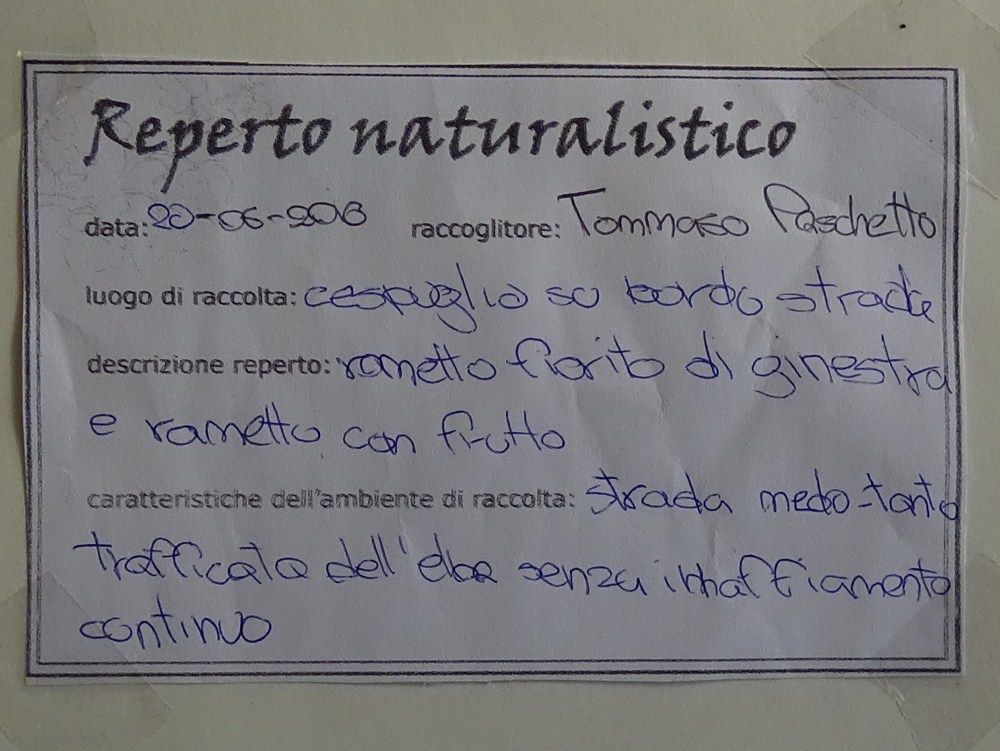 Reperto naturalistico
data: 20-06-2013 raccoglitore: Tommaso Paschetto
luogo di raccolta: cespuglio su bordo strada
descrizione reperto: rametto fiorito di ginestra
e rametto con frutto
caratteristiche dell'ambiente di raccolta: strada medo-tanto
trafficata dell'elba senza innaffiamento
continuo